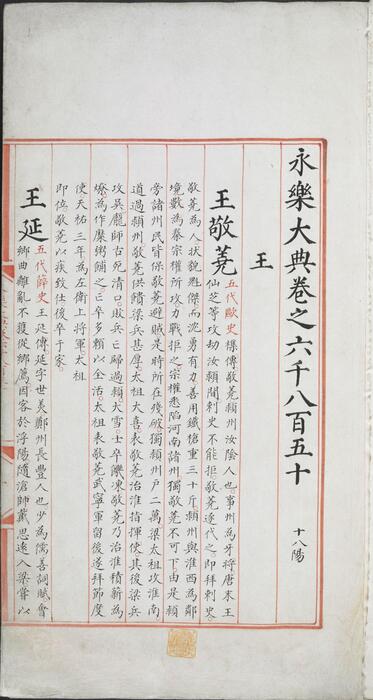 永樂大典卷之六千八百五十 十八陽
王
王敬蕘 五代歐史 襍傳敬蕘潁州汝陰人也事州為牙將唐末王
仙芝等攻劫汝潁間刺史不能拒敬蕘遂代之即拜刺史
敬蕘為人狀貌魁傑而沈勇有力善用鐵槍重三十斤潁州與淮西為鄰
境數為秦宗權所攻力戰拒之宗權悉陷河南諸州獨敬蕘不可下由是潁
旁諸州民皆保敬蕘避賊是時所在殘破獨潁州戶二萬梁太祖攻淮南
道過潁州敬蕘供饋梁兵甚厚太祖大喜表敬蕘治淮指揮使其後梁兵
攻吳龐師古死清口敗兵亡歸過潁大雪士卒饑凍敬蕘乃治淮積薪為
燎為作糜粥餔之亡卒多賴以全活太祖表敬蕘武寧軍留後遂拜節度
使天祐三年為左衛上將軍太祖
即位敬蕘以疾致仕後卒于家
王延 五代薛史 王延傳延字世美鄭州長豐人也少為儒善詞賦會
鄉曲離亂不獲從鄉薦因客於浮陽隨滄帥戴思遠入梁嘗以